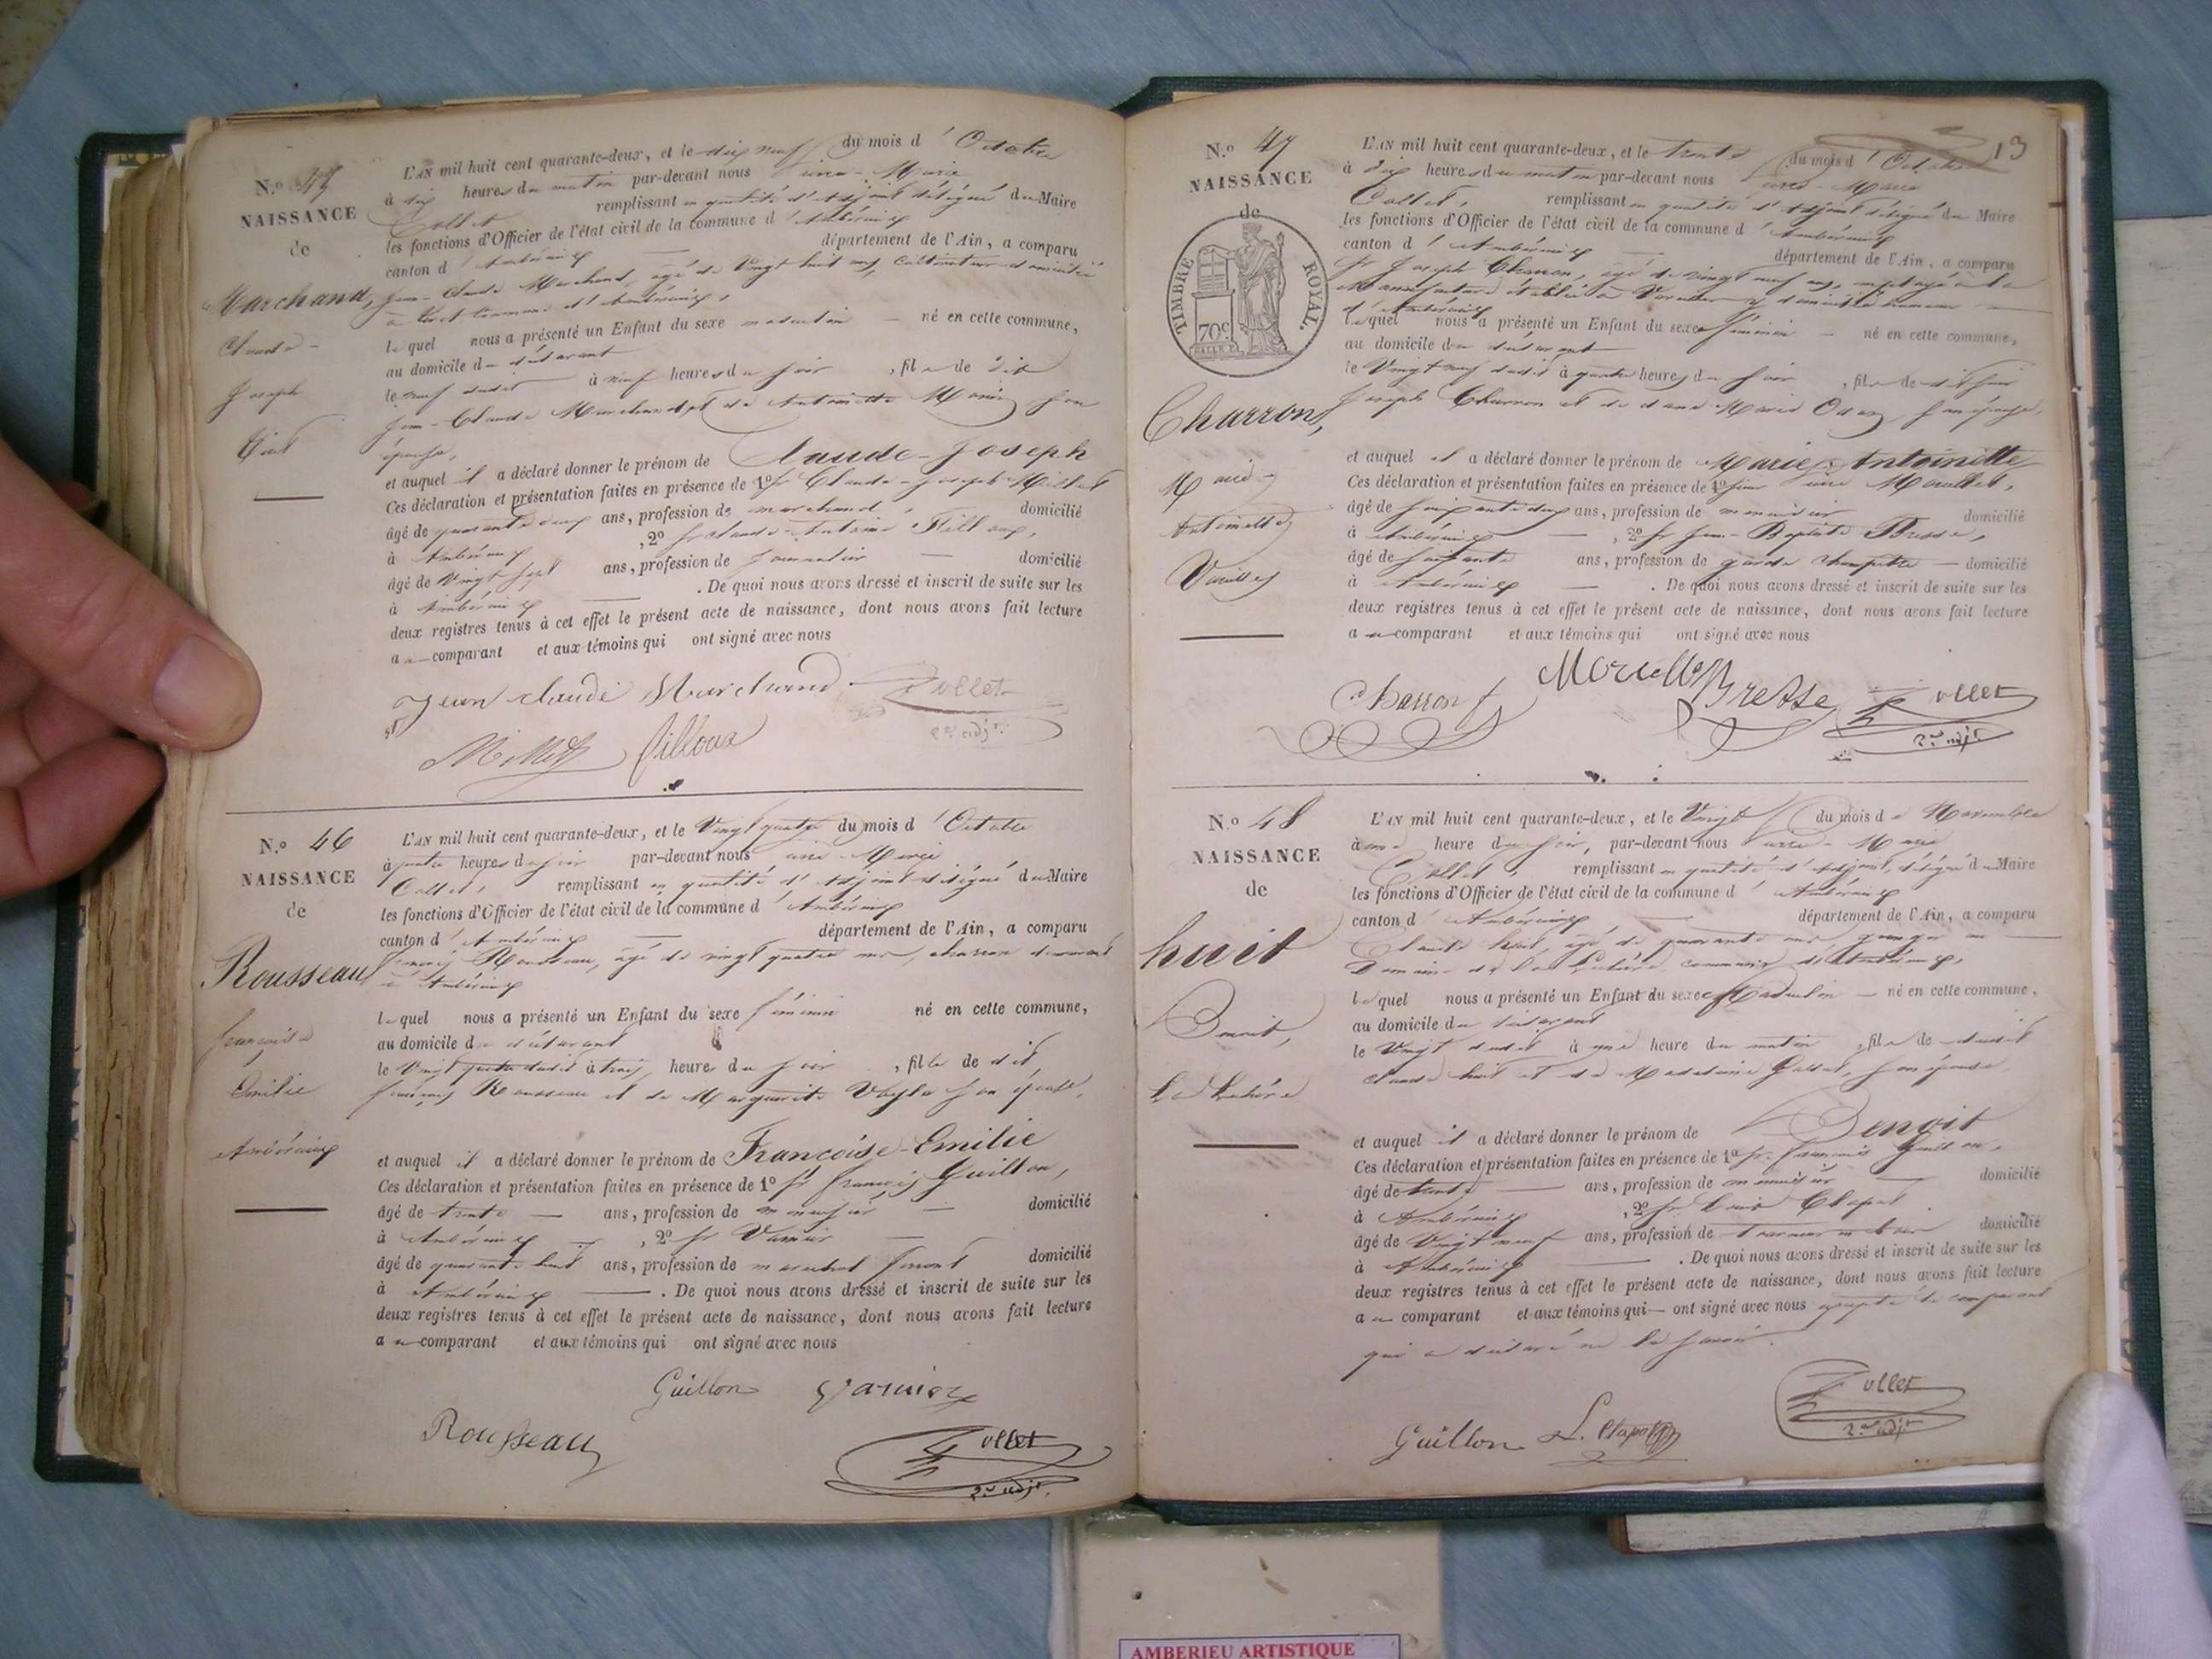 N.º 45
NAISSANCE
de
Marchand,
Claude-
Joseph
L'AN mil huit cent quarante-deux, et le dix neuf du mois d'Octobre
à dix heures du matin par-devant nous Pierre-Marie
Tollet remplissant en qualité d'Adjoint délégué du Maire
les fonctions d'Officier de l'état civil de la commune d'Ambérieux
canton d'Ambérieux département de l'Ain, a comparu
Jean-Claude Marchand, âgé de Vingt huit ans, Cultivateur domicilié
commune d'Ambérieux,
lequel nous a présenté un Enfant du sexe masculin né en cette commune,
au domicile du déclarant
le neuf dudit à neuf heures du soir, fils de dit
Jean-Claude Marchand et de Antoinette son
épouse,
et auquel il a déclaré donner le prénom de Claude-Joseph
Ces déclaration et présentation faites en présence de 1º Sr Claude-Joseph Millet
âgé de quarante deux ans, profession de marchand, domicilié
à Ambérieux, 2º Sr Claude-Antoine Filloux,
âgé de Vingt sept ans, profession de Journalier domicilié
à Ambérieux. De quoi nous avons dressé et inscrit de suite sur les
deux registres tenus à cet effet le présent acte de naissance, dont nous avons fait lecture
au comparant et aux témoins qui ont signé avec nous
Jean claude Marchand Tollet
2me adjt.
Millet filloux
N.º 46
NAISSANCE
de
Rousseau
françoise
Emilie
Ambérieux
L'AN mil huit cent quarante-deux, et le Vingt quatre du mois d'Octobre
à quatre heures du soir par-devant nous Pierre-Marie
Tollet, remplissant en qualité d'Adjoint délégué du Maire
les fonctions d'Officier de l'état civil de la commune d'Ambérieux
canton d'Ambérieux département de l'Ain, a comparu
françois Rousseau, âgé de vingt quatre ans, charron demeurant
à Ambérieux
lequel nous a présenté un Enfant du sexe féminin né en cette commune,
au domicile du déclarant
le Vingt quatre dudit à trois heures du soir, fille de dit
françois Rousseau et de Marguerite son épouse,
et auquel il a déclaré donner le prénom de Françoise-Emilie
Ces déclaration et présentation faites en présence de 1º Sr françois Guillon,
âgé de trente ans, profession de menuisier domicilié
à Ambérieux, 2º Sr Varnier
âgé de quarante huit ans, profession de maréchal ferrant domicilié
à Ambérieux. De quoi nous avons dressé et inscrit de suite sur les
deux registres tenus à cet effet le présent acte de naissance, dont nous avons fait lecture
au comparant et aux témoins qui ont signé avec nous
Guillon Varnier
Rousseau Tollet
2me adjt.
13
N.º 47
NAISSANCE
de
TIMBRE ROYAL.
70c
Charron,
Marie-
Antoinette
Vareilles
L'AN mil huit cent quarante-deux, et le trente du mois d'Octobre
à dix heures du matin par-devant nous Pierre-Marie
Tollet, remplissant en qualité d'Adjoint délégué du Maire
les fonctions d'Officier de l'état civil de la commune d'Ambérieux
canton d'Ambérieux département de l'Ain, a comparu
Sr Joseph Charron, âgé de vingt neuf ans, employé à la
Manufacture établie à
d'Ambérieux
lequel nous a présenté un Enfant du sexe féminin né en cette commune,
au domicile du déclarant
le Vingt neuf dudit à quatre heures du soir, fille de dit sieur
Joseph Charron et de dame Marie son épouse,
et auquel il a déclaré donner le prénom de Marie-Antoinette
Ces déclaration et présentation faites en présence de 1º sieur Pierre
âgé de soixante dix ans, profession de menuisier domicilié
à Ambérieux, 2º Sr Jean-Baptiste Bresse,
âgé de soixante ans, profession de garde champêtre domicilié
à Ambérieux. De quoi nous avons dressé et inscrit de suite sur les
deux registres tenus à cet effet le présent acte de naissance, dont nous avons fait lecture
au comparant et aux témoins qui ont signé avec nous
Charron Bresse Tollet
2me adjt.
N.º 48
NAISSANCE
de
huit
Benoit,
L'AN mil huit cent quarante-deux, et le Vingt du mois de Novembre
à une heure du soir, par-devant nous Pierre-Marie
Tollet, remplissant en qualité d'Adjoint, délégué du Maire
les fonctions d'Officier de l'état civil de la commune d'Ambérieux
canton d'Ambérieux, département de l'Ain, a comparu
Claude huit, âgé de quarante ans granger au
Domaine de commune d'Ambérieux,
lequel nous a présenté un Enfant du sexe Masculin né en cette commune,
au domicile du déclarant
le Vingt dudit à une heure du matin, fils de dudit
claude huit et de Madelaine son épouse
et auquel il a déclaré donner le prénom de Benoit
Ces déclaration et présentation faites en présence de 1º Sr françois Guillon,
âgé de trente ans, profession de menuisier domicilié
à Ambérieux, 2º Sr Louis Chapot
âgé de Vingt neuf ans, profession de domicilié
à Ambérieux. De quoi nous avons dressé et inscrit de suite sur les
deux registres tenus à cet effet le présent acte de naissance, dont nous avons fait lecture
au comparant et aux témoins qui ont signé avec nous excepté le comparant
qui a déclaré ne le savoir.
Guillon Tollet
2me adjt.
AMBERIEU ARTISTIQUE